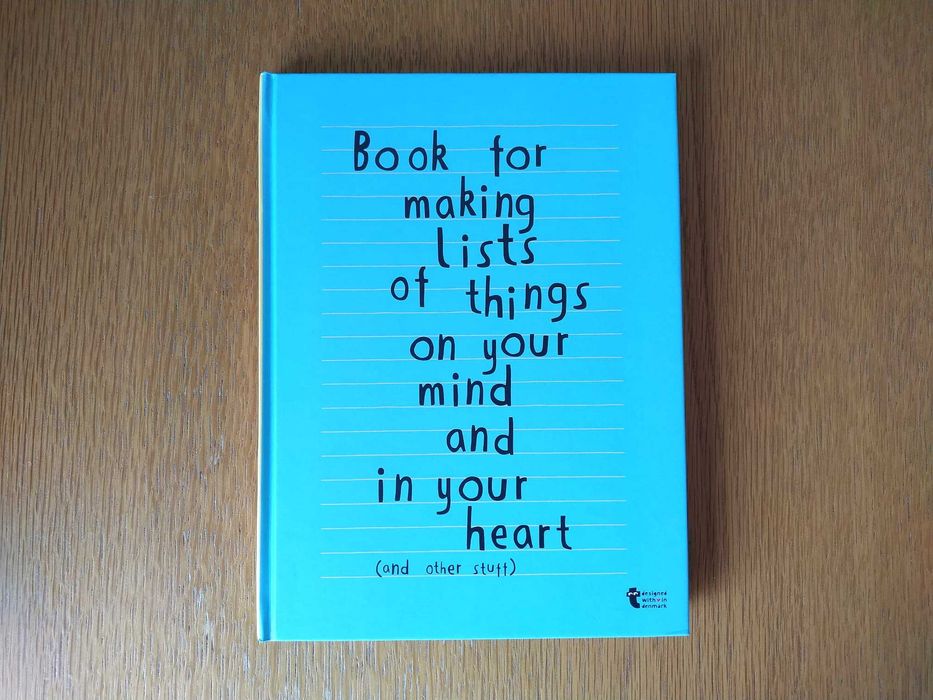 Book for
making
lists
of things
on your
mind
and
in your
heart
(and other stuff)
designed
with ♥ in
denmark